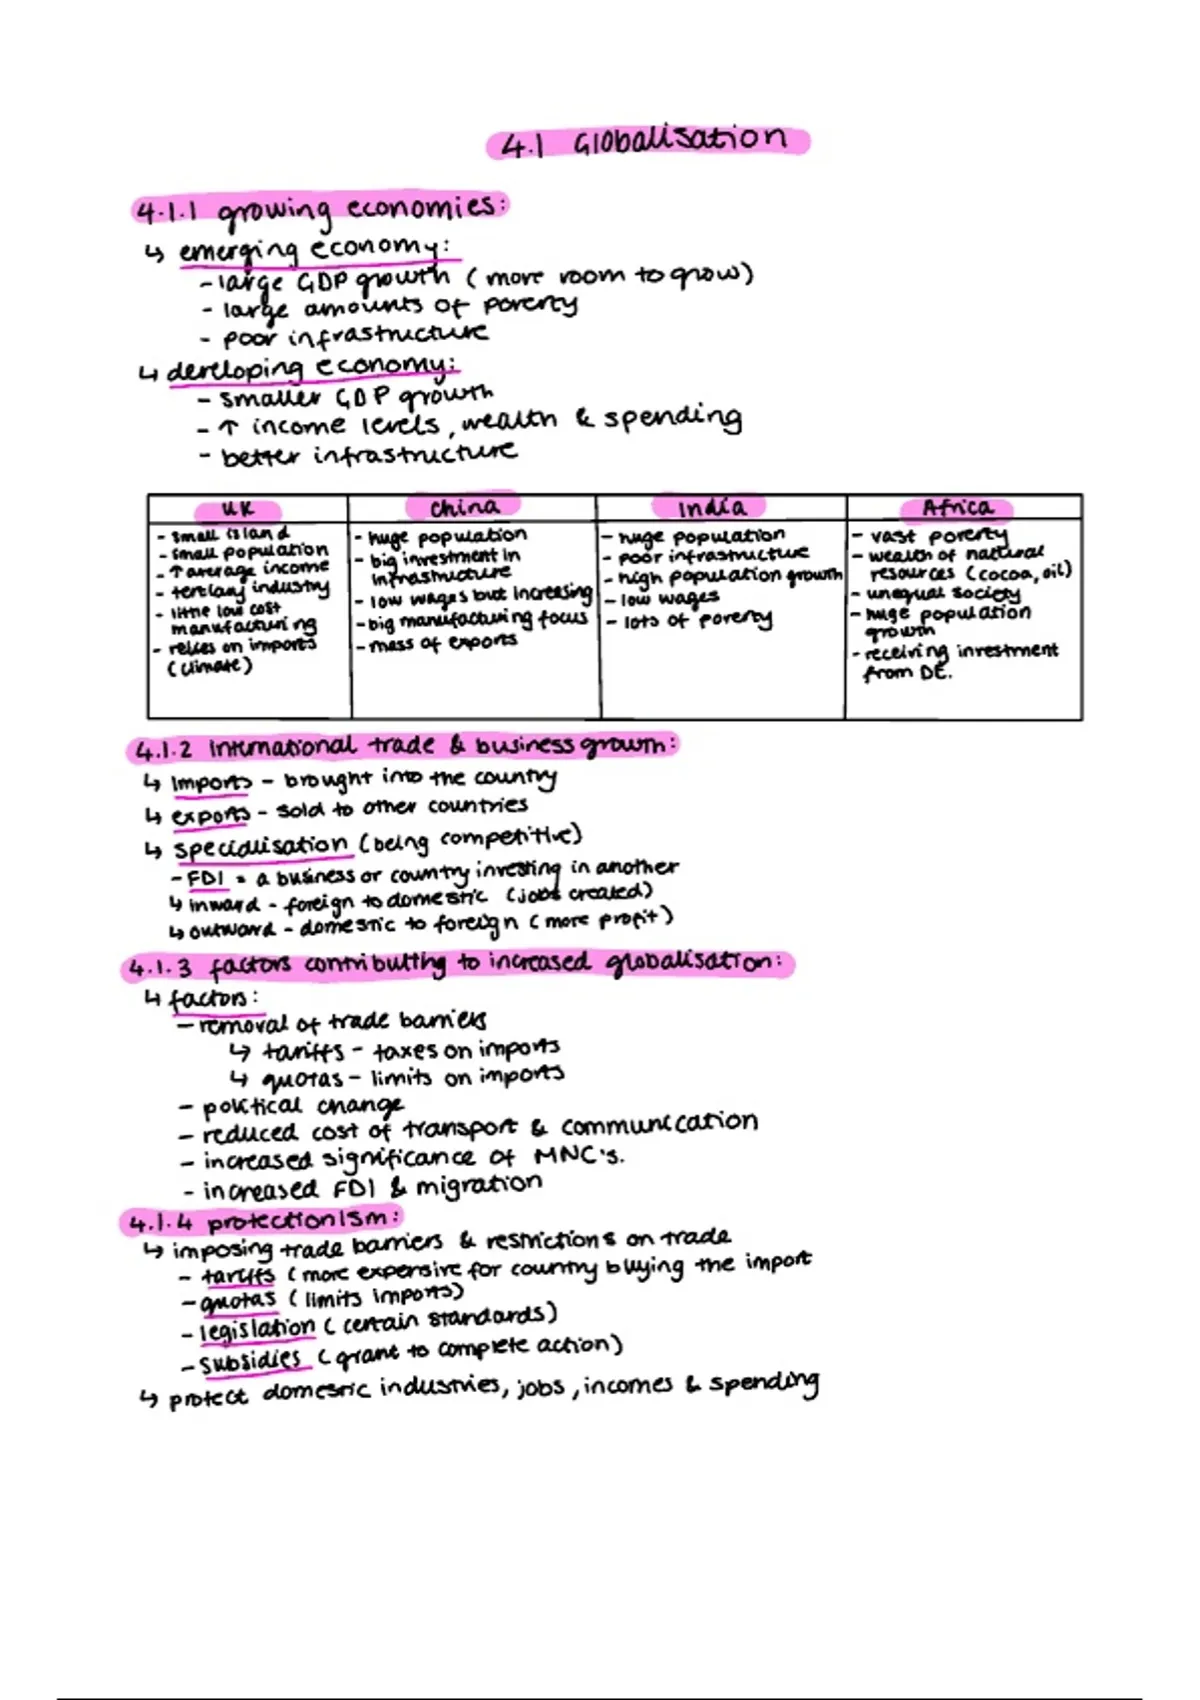 4.1 Globalisation
4.1.1 growing economies:
↳ emerging economy:
- large GDP growth (more room to grow)
- large amounts of poverty
- poor infrastructure
↳ developing economy:
- smaller GDP growth
- ↑ income levels, wealth & spending
- better infrastructure
UK
- small island
- small population
- ↑ average income
- tertiary industry
- little low cost
manufacturing
- relies on imports
(climate)
China
- huge population
- big investment in
infrastructure
- low wages but increasing
- big manufacturing focus
- mass of exports
India
- huge population
- poor infrastructure
- high population growth
- low wages
- lots of poverty
Africa
- vast poverty
- wealth of natural
resources (cocoa, oil)
- unequal society
- huge population
growth
- receiving investment
from DE.
4.1.2 International trade & business growth:
↳ imports - brought into the country
↳ exports - sold to other countries
↳ specialisation (being competitive)
- FDI = a business or country investing in another
↳ inward - foreign to domestic (jobs created)
↳ outward - domestic to foreign (more profit)
4.1.3 factors contributing to increased globalisation:
↳ factors:
- removal of trade barriers
↳ tariffs - taxes on imports
↳ quotas - limits on imports
- political change
- reduced cost of transport & communication
- increased significance of MNC's.
- increased FDI & migration
4.1.4 protectionism:
↳ imposing trade barriers & restrictions on trade
- tariffs (more expensive for country buying the import
- quotas (limits imports)
- legislation (certain standards)
- subsidies (grant to complete action)
↳ protect domestic industries, jobs, incomes & spending